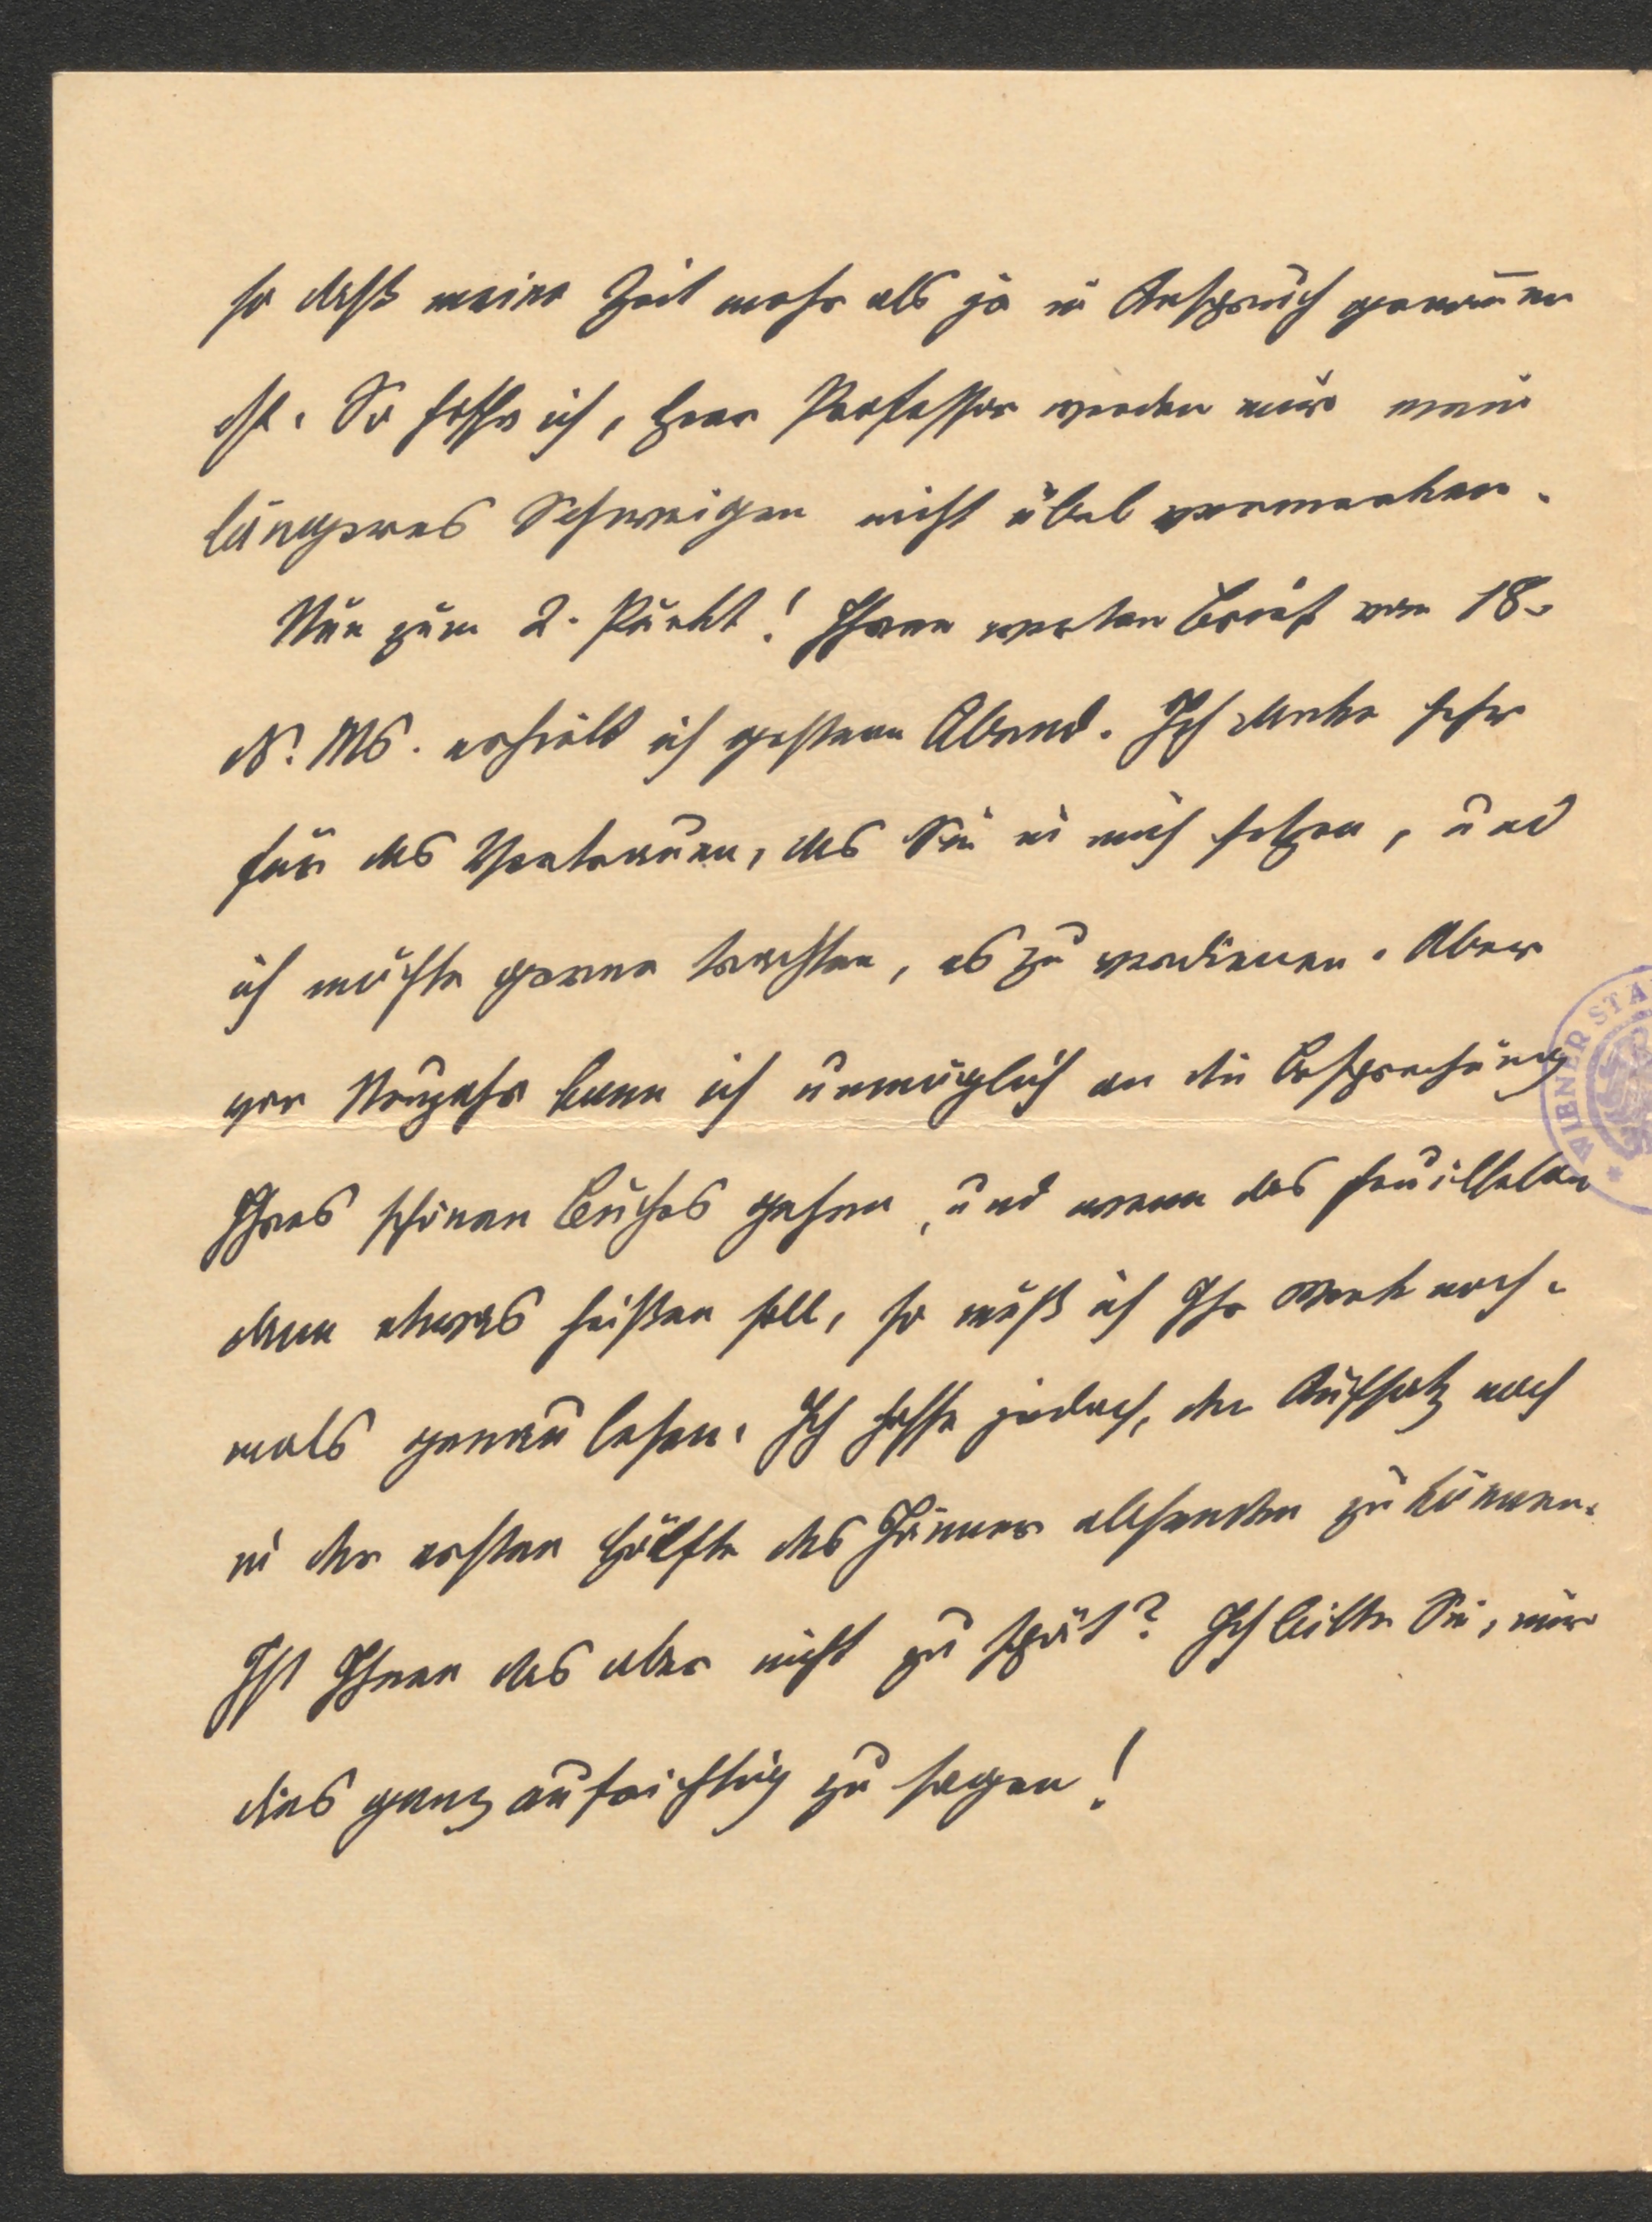 so daß meine Zeit mehr als je in Anspruch genom̅en
ist. So hoffe ich, Herr Professor werden mir mein
längeres Schweigen nicht übel vermerken.
Nun zum 2. Punkt! Ihren werten Brief vom 18.
d. Ms. erhielt ich gestern Abend. Ich danke sehr
für das Vertrauen, das Sie in mich setzen, und
ich möchte gerne trachten, es zu verdienen. Aber
vor Neujahr kann ich unmöglich an die Besprechung
Ihres schönen Buches gehen, und wenn das Feuilleton
dann etwas heißen soll, so muß ich Ihr Werk noch-
mals genau lesen. Ich hoffe jedoch, den Aufsatz noch
in der ersten Hälfte des Jänner absenden zu können.
Ist Ihnen das aber nicht zu spät? Ich bitte Sie, mir
dies ganz aufrichtig zu sagen!
WIENER STA